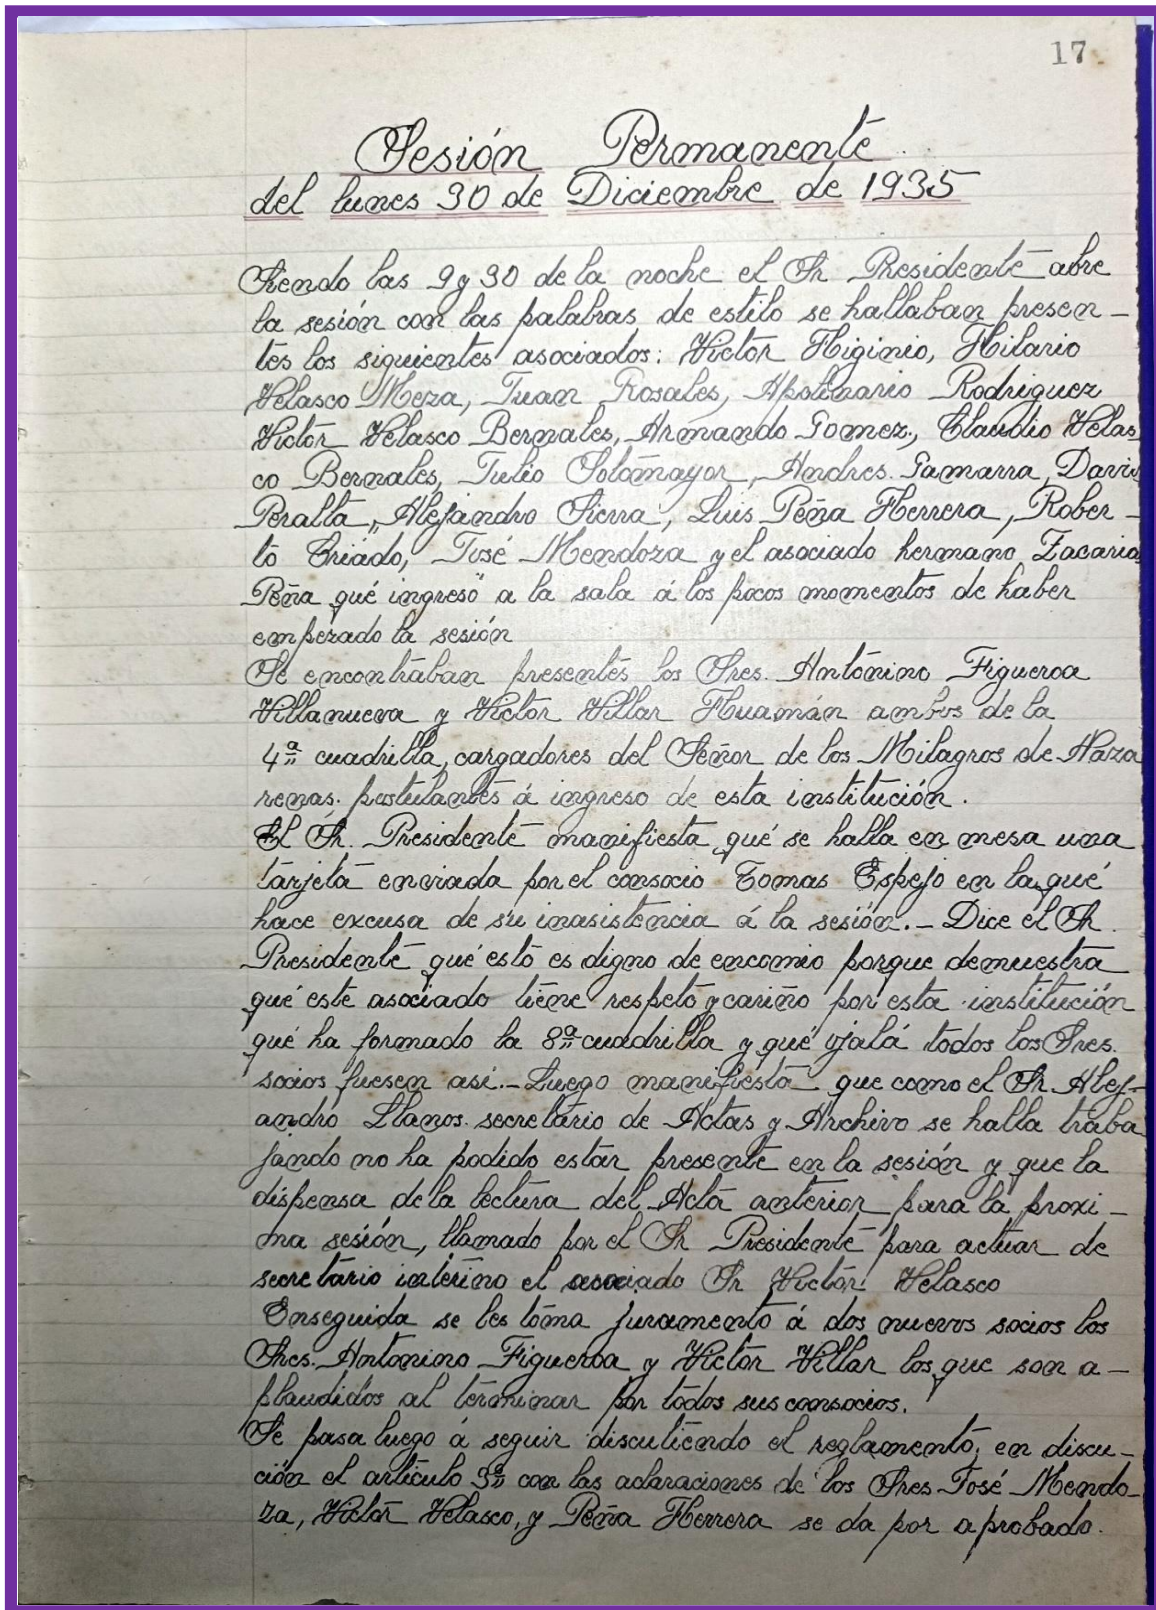 17
Sesión Permanente
del lunes 30 de Diciembre de 1935
Siendo las 9 y 30 de la noche el Sr Presidente abre
la sesión con las palabras de estilo se hallaban presen-
tes los siguientes asociados: Victor Higinio, Hilario
Velasco Meza, Juan Rosales, Apolinario Rodriguez
Victor Velasco Bernales, Armando Gomez, Claudio Velas
co Bernales, Julio Sotomayor, Andres Gamarra, David
Peralta, Alejandro Sierra, Luis Peña Herrera, Rober-
to Criado, José Mendoza y el asociado hermano Zacarias
Peña qué ingresó a la sala á los pocos momentos de haber
empezado la sesión
Se encontraban presentes los Sres. Antonino Figueroa
Villanueva y Victor Villar Huamán ambos de la
4ª cuadrilla, cargadores del Señor de los Milagros de Naza
renas. postulantes á ingreso de esta institución.
El Sr. Presidente manifiesta qué se halla en mesa una
tarjeta enviada por el consocio Tomas Espejo en la qué
hace excusa de su inasistencia á la sesión.- Dice el Sr.
Presidente qué esto es digno de encomio porque demuestra
qué este asociado tiene respeto y cariño por esta institución
qué ha formado la 8ª cuadrilla y qué ojalá todos los Sres.
socios fuesen asi.- Luego manifiesta que como el Sr. Alej-
andro Llanos. secretario de Actas y Archivo se halla traba
jando no ha podido estar presente en la sesión y que la
dispensa de la lectura del Acta anterior para la proxi-
ma sesión, llamado por el Sr Presidente para actuar de
secretario interino el asociado Sr Victor Velasco
Enseguida se les toma juramento á dos nuevos socios los
Sres. Antonino Figueroa y Victor Villar los que son a-
plaudidos al terminar por todos sus consocios.
Se pasa luego á seguir discutiendo el reglamento, en discu-
ción el articulo 3º con las aclaraciones de los Sres José Mendo-
za, Victor Velasco, y Peña Herrera se da por aprobado.